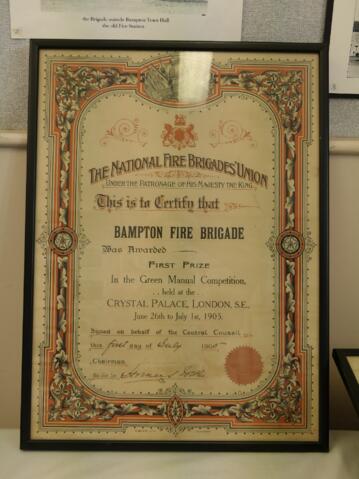 the Brigade outside Bampton Town Hall
the old Fire Station
THE NATIONAL FIRE BRIGADES' UNION
UNDER THE PATRONAGE OF HIS MAJESTY THE KING
This is to Certify that
BAMPTON FIRE BRIGADE
Was Awarded
FIRST PRIZE
In the Green Manual Competition,
.. held at the ..
CRYSTAL PALACE, LONDON, S.E.,
June 26th to July 1st, 1905.
Signed on behalf of the Central Council
this first day of July 1905
Chairman,